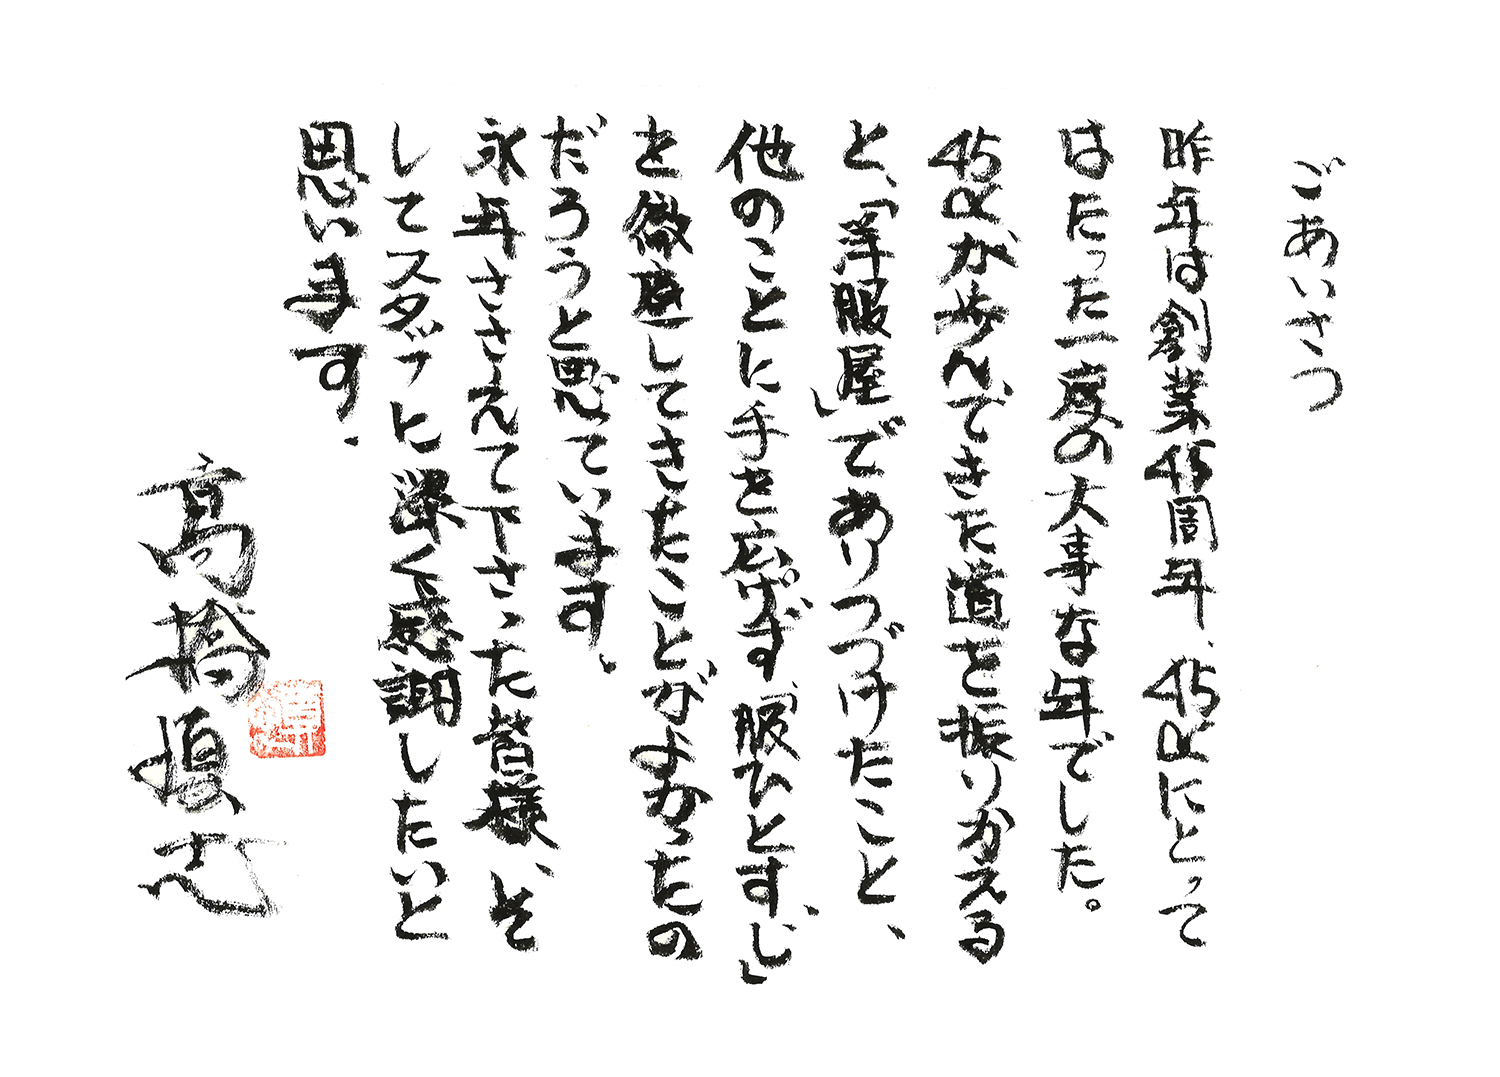 ごあいさつ
昨年は創業45周年、45Rにとって
はたった一度の大事な年でした。
45Rが歩んできた道を振りかえる
と、「洋服屋」でありつづけたこと、
他のことに手を広げず、「服ひとすじ」
を徹底してきたことがよかったの
だろうと思ています。
永年ささえて下さった皆様、そ
してスタッフに深く感謝したいと
思います。
高橋慎志